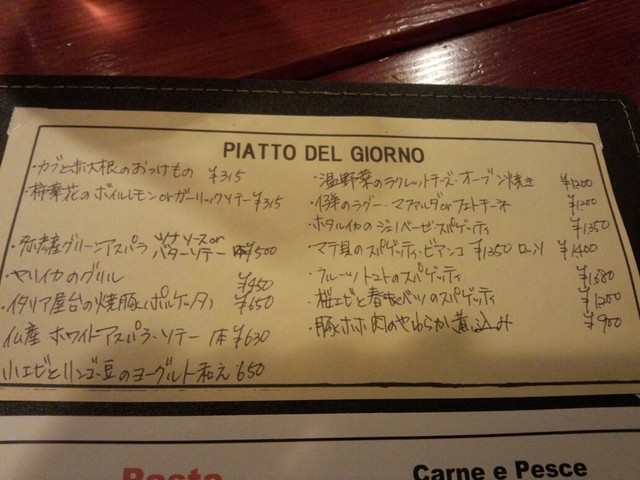 PIATTO DEL GIORNO
・カブと赤大根のおつけもの ¥315
菜花のボイルレモンorガーリックソテー ¥315
産グリーンアスパラ ツナソースor
バターソテー ¥500
ヤリイカのグリル ¥950
・イタリア屋台の焼豚(ポルケッタ) ¥650
仏産ホワイトアスパラ・ソテー 1本 ¥630
小エビとリンゴ・豆のヨーグルト和え 650
・温野菜のラクレットチーズ・オーブン焼き ¥1200
・仔羊のラグー・マファルダorフェトチーネ ¥1200
・ホタルイカのジェノベーゼスパゲッティ ¥1350
・マテ貝のスパゲッティ・ビアンコ ¥1350 ロッソ ¥1400
・フルーツトマトのスパゲッティ
・桜エビと春キャベツのスパゲッティ ¥1200
・豚ホホ肉のやわらか煮込み ¥900
Pasta
Carne e Pesce